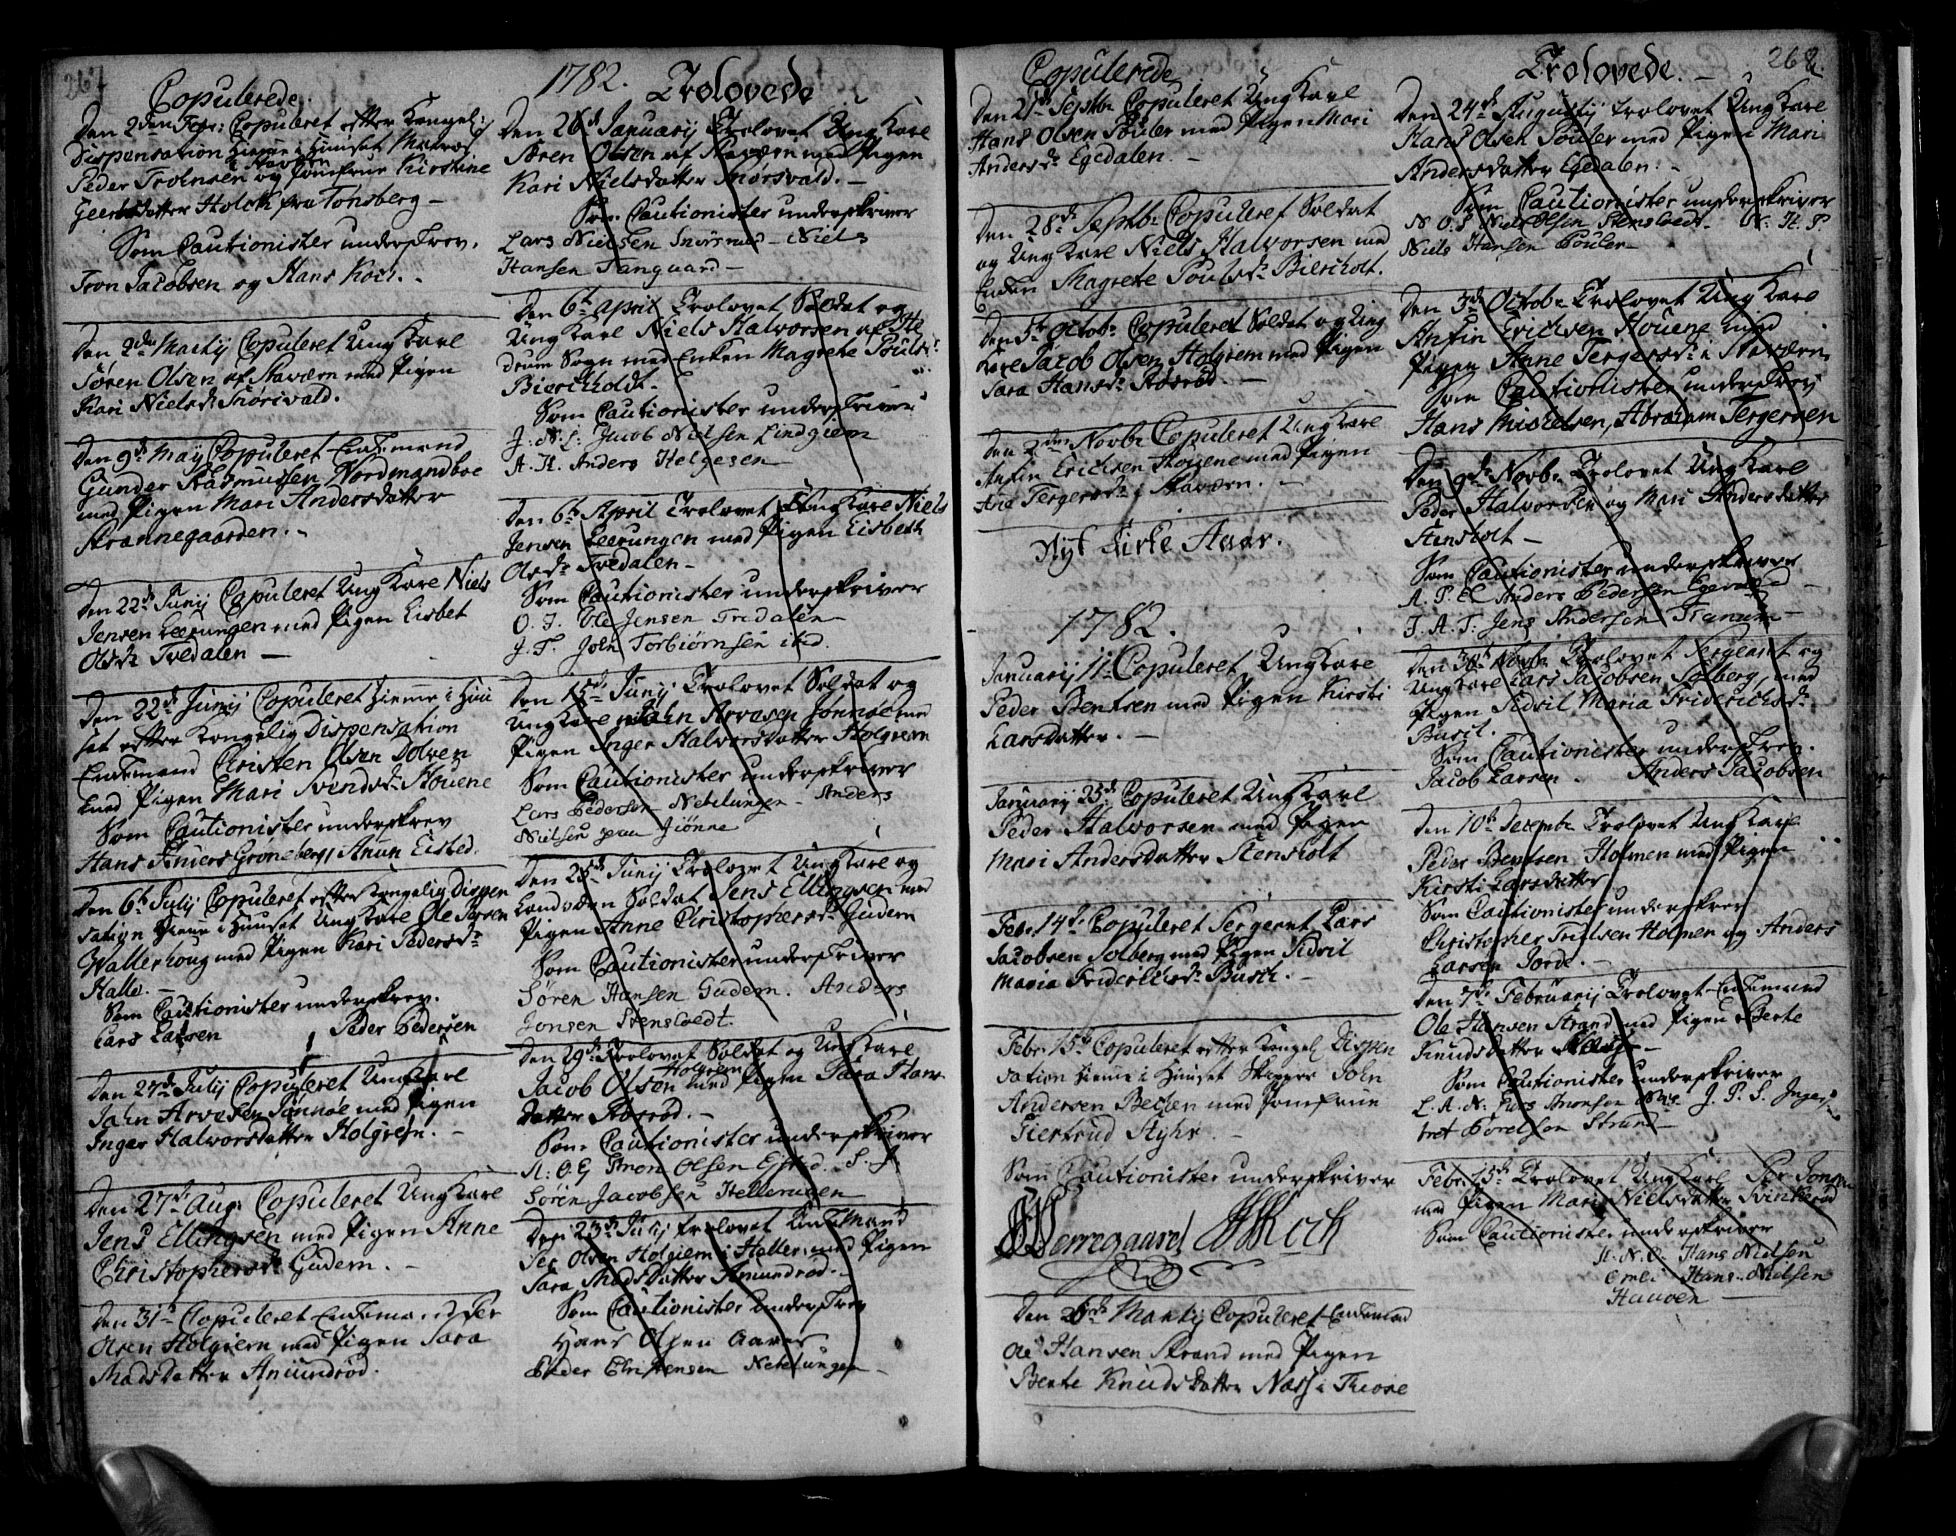 267
Copulerede.
Den 2den Febr: Copuleret efter Kongel:
Dispensation hieme i Huuset Matros
Peder Trolnsen og Jomfrue Kirstine
Geertsdatter Holck fra Tønsberg –
Som Cautionister underskrev.
Tron Jacobsen og Hans Koch. –
Den 2de Martij Copuleret Ung Karl
Søren Olsen af Staværn med Pigen
Kari Nielsdr Snorsvald.
Den 9de Maij Copuleret Enkemand
Gunder Rasmussen Nordmandboe
med Pigen Mari Andersdatter
Skrannegaarden. –
Den 22de Junij Copuleret Ung Karl Niels
Jensen Leerungen med Pigen Lisbet
Olsdr Tvedalen –
Den 22de Junij Copuleret hieme i Huu
set efter Kongelig Dispensation
Enkemand Christen Olsen Dolven
med Pigen Mari Svendsdr Houene
Som Cautionister underskrev
Hans Groneberg, Anun Eisted.
Den 6te Julij Copuleret efter Kongelig Dispen
sation hieme i Huuset Ung Karl Ole
Wallerhoug med Pigen Kari Pedersdr
Halle. –
Som Cautionister underskrev.
Lars Larsen Peder Pedersen
Den 27de Julij Copuleret Ung Karl
Jahn Arvesen Jønnøe med Pigen
Inger Halworsdatter Holgrem. –
Den 27de Aug: Copuleret Ung Karl
Jens Ellingsen med Pigen Anne
Christophersdr Gudem. –
Den 31te Copuleret Enkemand Per
Olsen Holgrem med Pigen Sara
Madsdatter Amundrød.
1782. Trolovede
Den 26de Januarij Trolovet Ung Karl
Søren Olsen af Staværn med Pigen
Kari Nielsdatter Snorsvald. –
Som Cautionister underskriver
Lars Nielsen – Niels
Hansen Tanguard –
Den 6te April Trolovet Soldat og
Ung Karl Niels Halvorsen af He
drum Sogn med Enken Magrete Poulsdr
Biercholdt.
Som Cautionister underskriver
J. N. L. Jacob Nielsen Lindgiem
A. H. Anders Helgesen
Den 6te April Trolovet Ung Karl Niels
Jensen Leerungen med Pigen Lisbeth
Olsdr Tvedalen –
Som Cautionister underskriver
O. J. Ole Jensen Tredalen
J. T. John Torbiørnsen ibid.
Den 15de Junij Trolovet Soldat og
Ung Karl Jahn Arvesen Jonnøe med
Pigen Inger Halvorsdatter Holgrem
Som Cautionister underskriver
Lars Pedersen Nebelungen – Anders
Nielsen paa Jiønne
Den 25de Junij Trolovet Ung Karl og
Landværn Soldat Jens Ellingsen med
Pigen Anne Christophersdr Gudem
Som Cautionister underskriver
Søren Hansen Gudem. Anders
Jonsen Stensloedt.
Den 29de Trolovet Soldat og Ung Karl
Holgrem
Jacob Olsen med Pigen Sara Hans
datter Røsrød. –
Som Cautionister underskriver
A. O. E Aron Olsen Eftød. S. J
Søren Jacobsen Hellenugen
Den 23de Julij trolovet Enkemand
Per Olsen Holgiem i Haller, med Pigen
Sara Madsdatter Amundrød. –
Som Cautionister underskrev
Hans Olsen Aarve
Peder Christensen Nebelungen –
Copulerede
Den 21de Septbr Copuleret Ung Karl
Hans Olsen Pouler med Pigen Mari
Andersdr Egedalen. –
Den 28de Septbr Copuleret Soldat
og Ung Karl Niels Halvorsen med
Enken Magrete Poulsdr Biercholt.
Den 5te Octobr Copuleret Soldat og Ung
Karl Jacob Olsen Holgrem med Pigen
Sara Hansdr Røsrød. –
Den 2den Novbr Copuleret Ung Karl
Anfin Erichsen Houene med Pigen
Ane Tergersdr i Staværn. –
Nyt Kirke Aar.
1782.
Januarij 11te Copuleret Ung Karl
Peder Bentsen med Pigen Kirsti
Larsdatter. –
Januarij 25de Copuleret Ung Karl
Peder Halvorsen med Pigen
Mari Andersdatter Stensholt
Febr: 14de Copuleret Sergeant Lars
Jacobsen Solberg med Pigen Sidsil
Maria Friderichsdr Busch. –
Febr: 15de Copuleret efter Kongel: Dispen
sation hieme i Huuset Skipper John
Andersen Becken med Jomfrue
Giertrud Styhr –
Som Cautionister underskriver
Werregaard Koch
Den 26de Martij Copuleret Enkemand
Ole Hansen Strand med Pigen
Bente Knudsdatter Næs i Thiose
Trolovede. – 268
Den 24de Augustij trolovet Ung Karl
Hans Olsen Pouler med Pigen Mari
Andersdatter Egedalen. –
Som Cautionister underskriver
N. O. S Niels Olsen Stensloedt. N. H. P
Niels Hansen Pouler
Den 3de Octobr Trolovet Ung Karl
Anfin Erichsen Houene med
Pigen Anne Tergersdr i Staværn.
Som Cautionister underskrev
Hans Mickelsen, Abraham Tergersen
Den 9de Novbr Trolovet Ung Karl
Peder Halvorsen og Mari Andersdatter
Stensholt –
Som Cautionister underskriver
A. P. E Anders Pedersen
J. A. T. Jens Andersen Tranum –
Den 30te Novbr Trolovet Sergeant og
Ung Karl Lars Jacobsen Solberg, med
Pigen Sidsil Maria Friderichsdr
Busch.
Som Cautionister underskrev.
Jacob Larsen. Anders Jacobsen
Den 10de Decembr Trolovet Ung Karl
Peder Bentsen Holmen med Pigen
Kirsti Larsdatter
Som Cautionister underskrev
Christopher Trulsen Holmen og Anders
Larsen Jorde. –
Den 7de Februarij Trolovet Enkemand
Ole Hansen Strand med Pigen Bente
Knudsdatter Næss –
Som Cautionister underskriver
L. A. N. Lars Aronsen J. P. S. Inge
bret Borelsen Strand –
Febr: 15de Trolovet Ung Karl Per Jonsen
med Pigen Mari Nielsdatter Tvinkerød
Som Cautionister underskriver
H. N. O. Hans Nielsen
Omli Hans Nielsen
Hauven –